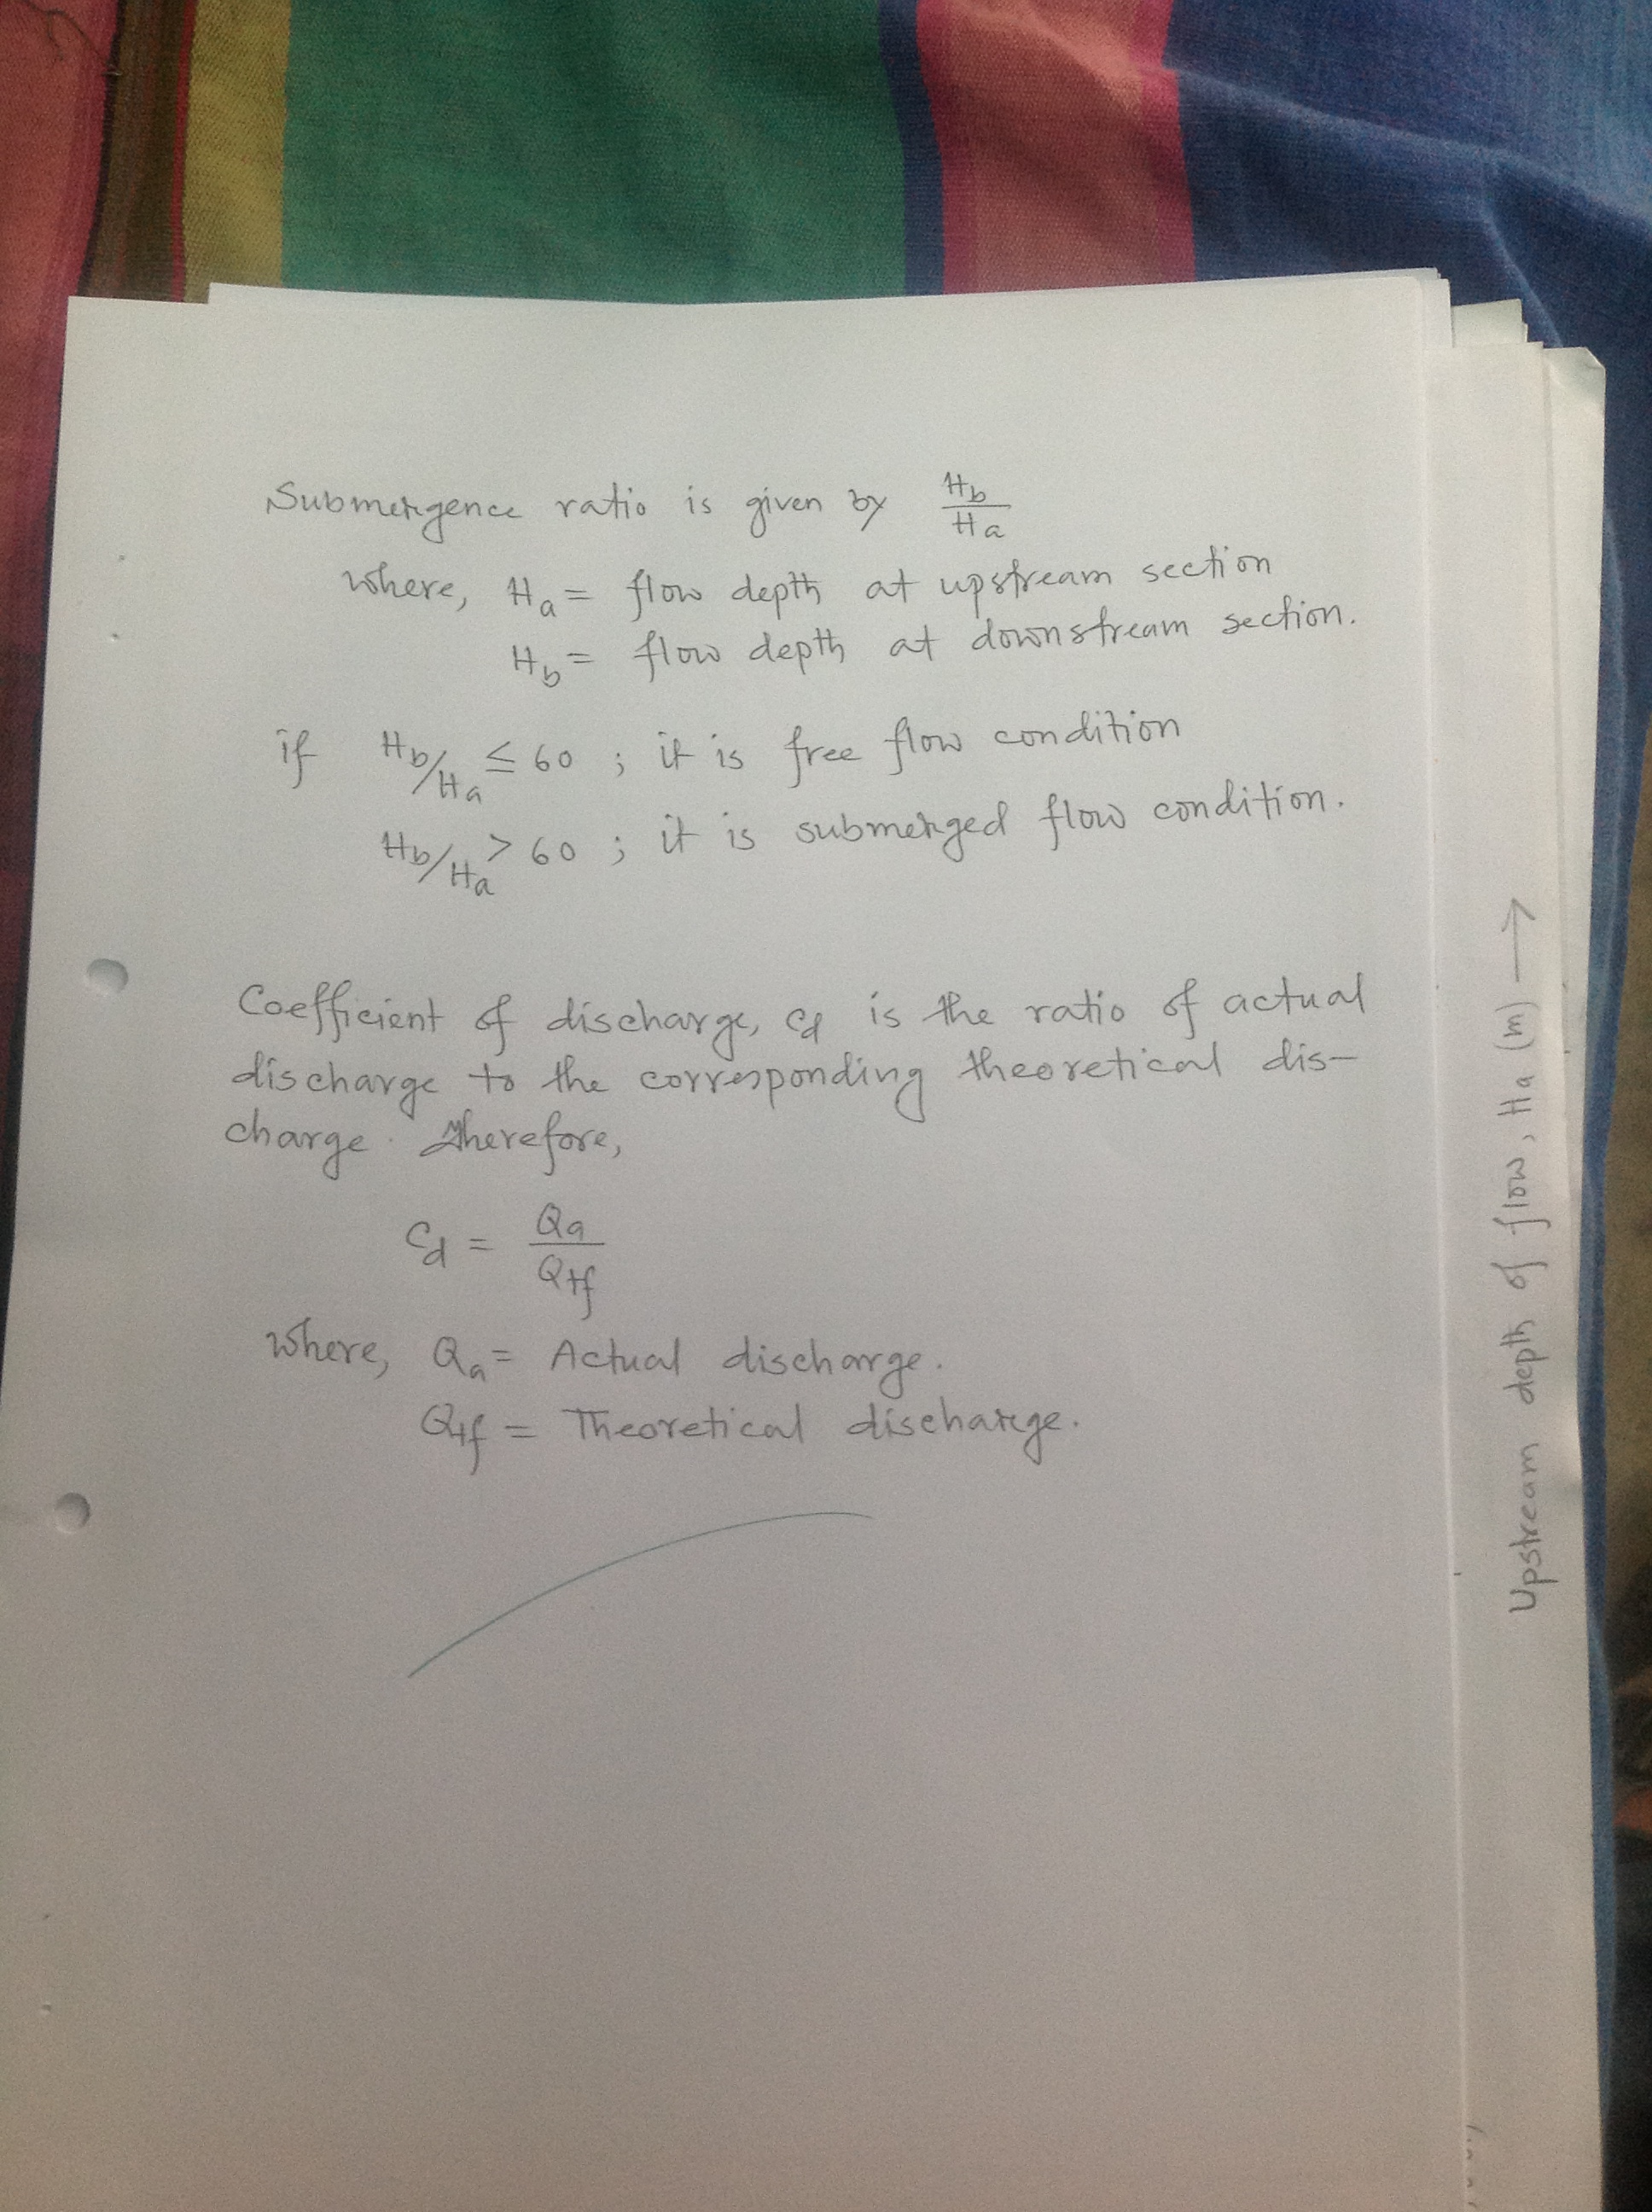 Submergence ratio is given by Hb/Ha
where, Ha = flow depth at upstream section
Hb = flow depth at downstream section.
if Hb/Ha ≤ 60 ; it is free flow condition
Hb/Ha > 60 ; it is submerged flow condition.
Coefficient of discharge, Cd is the ratio of actual
discharge to the corresponding theoretical dis-
charge. Therefore,
Cd = Qa/Qtf
where, Qa = Actual discharge.
Qtf = Theoretical discharge.
Upstream depth of flow, Ha (m) →